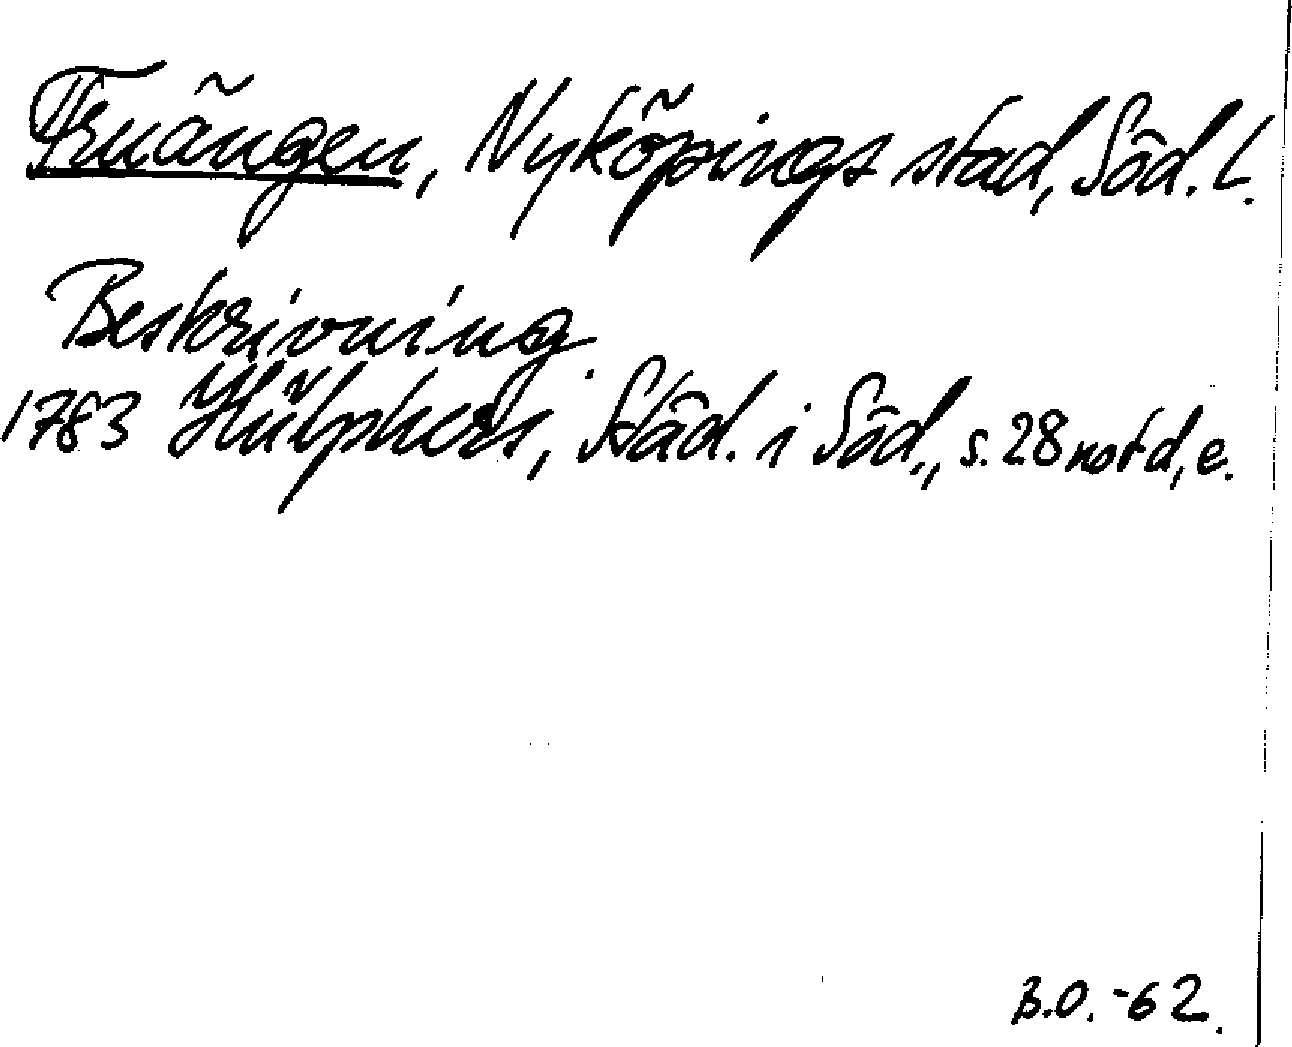 Fruängen, Nyköpings stad, Söd. l.
Beskrivning.
1783 Hülphers, Städ. i Söd., s. 28 not d, e.
B.O. -62.